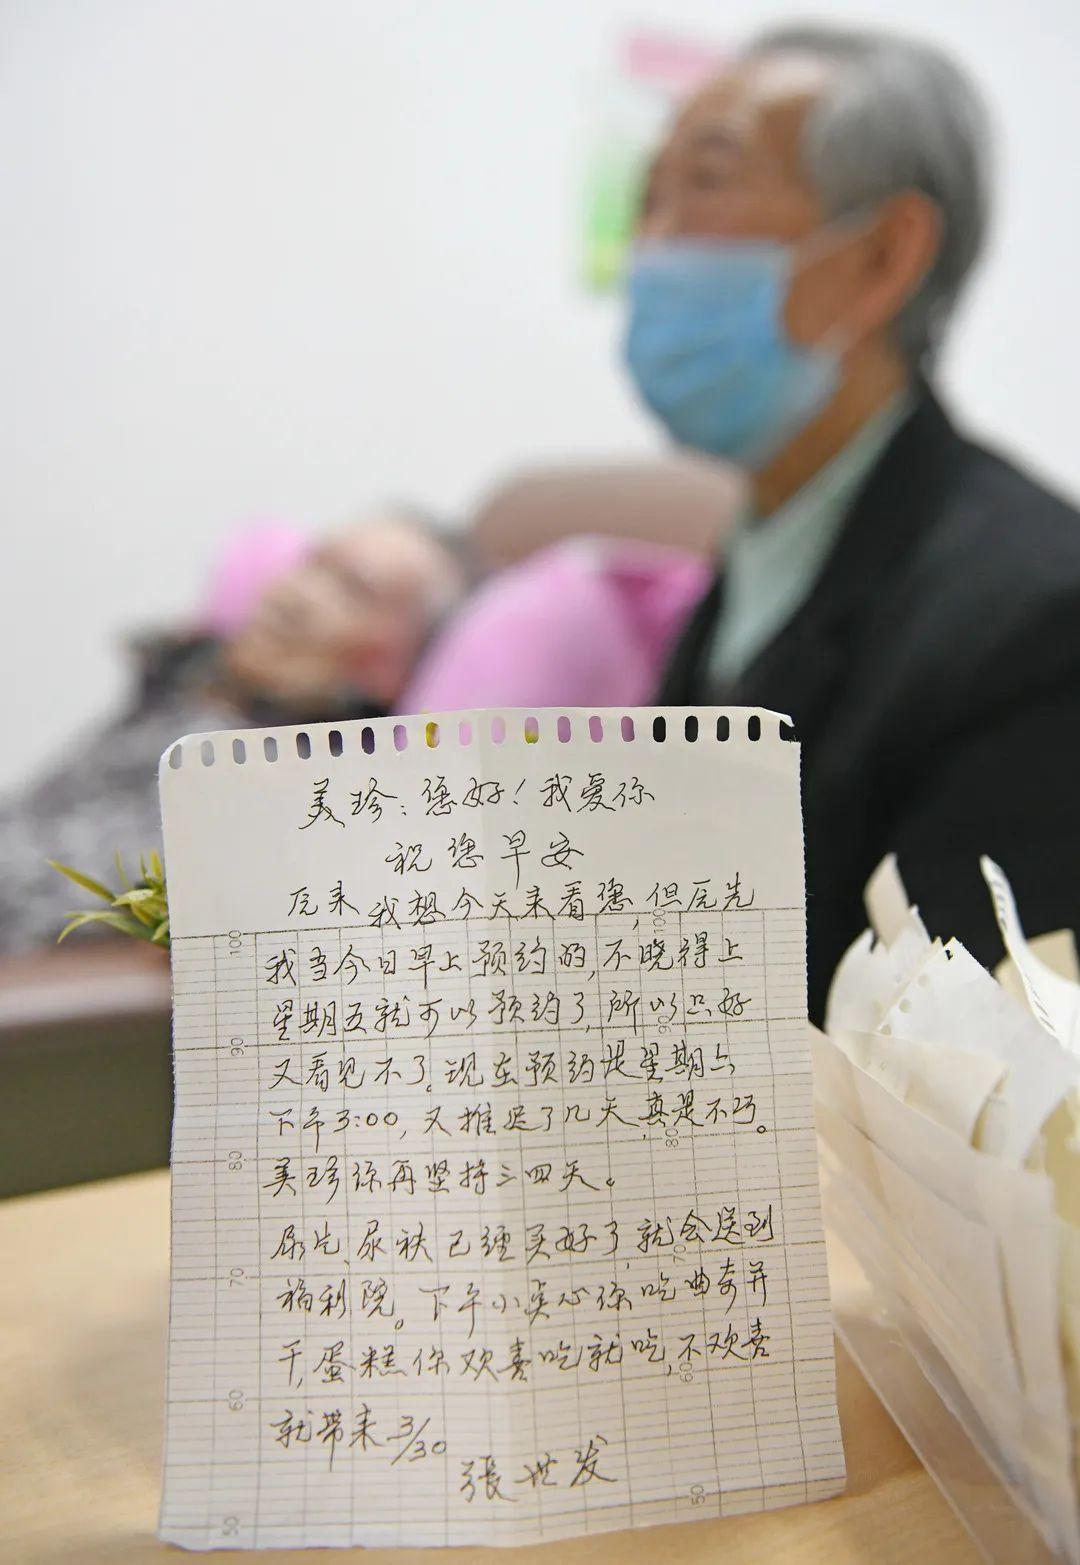 美珍：您好！我爱你
祝您早安
后来我想今天来看您，但原先
我当今日早上预约的，不晓得上
星期五就可以预约了，所以只好
又看见不了。现在预约是星期六
下午3:00，又推迟了几天，真是不巧。
美珍你再坚持三四天。
尿片、尿袂已经买好了，就会送到
福利院。下午小点心你吃曲奇并
干，蛋糕你欢喜吃就吃，不欢喜
就带来 3/30
張世发
100
100
90
90
80
80
70
70
60
60
50
50